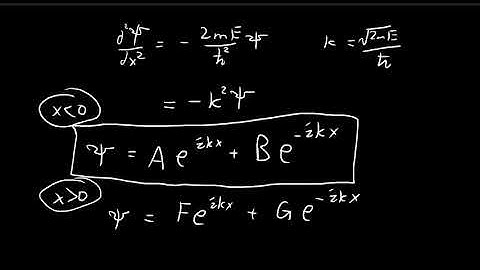 d²ψ/dx² = - 2mE/ħ² ψ k = √2mE/ħ
x<0 = -k²ψ
ψ = Ae^ikx + Be^-ikx
x>0 ψ = Fe^ikx + Ge^-ikx